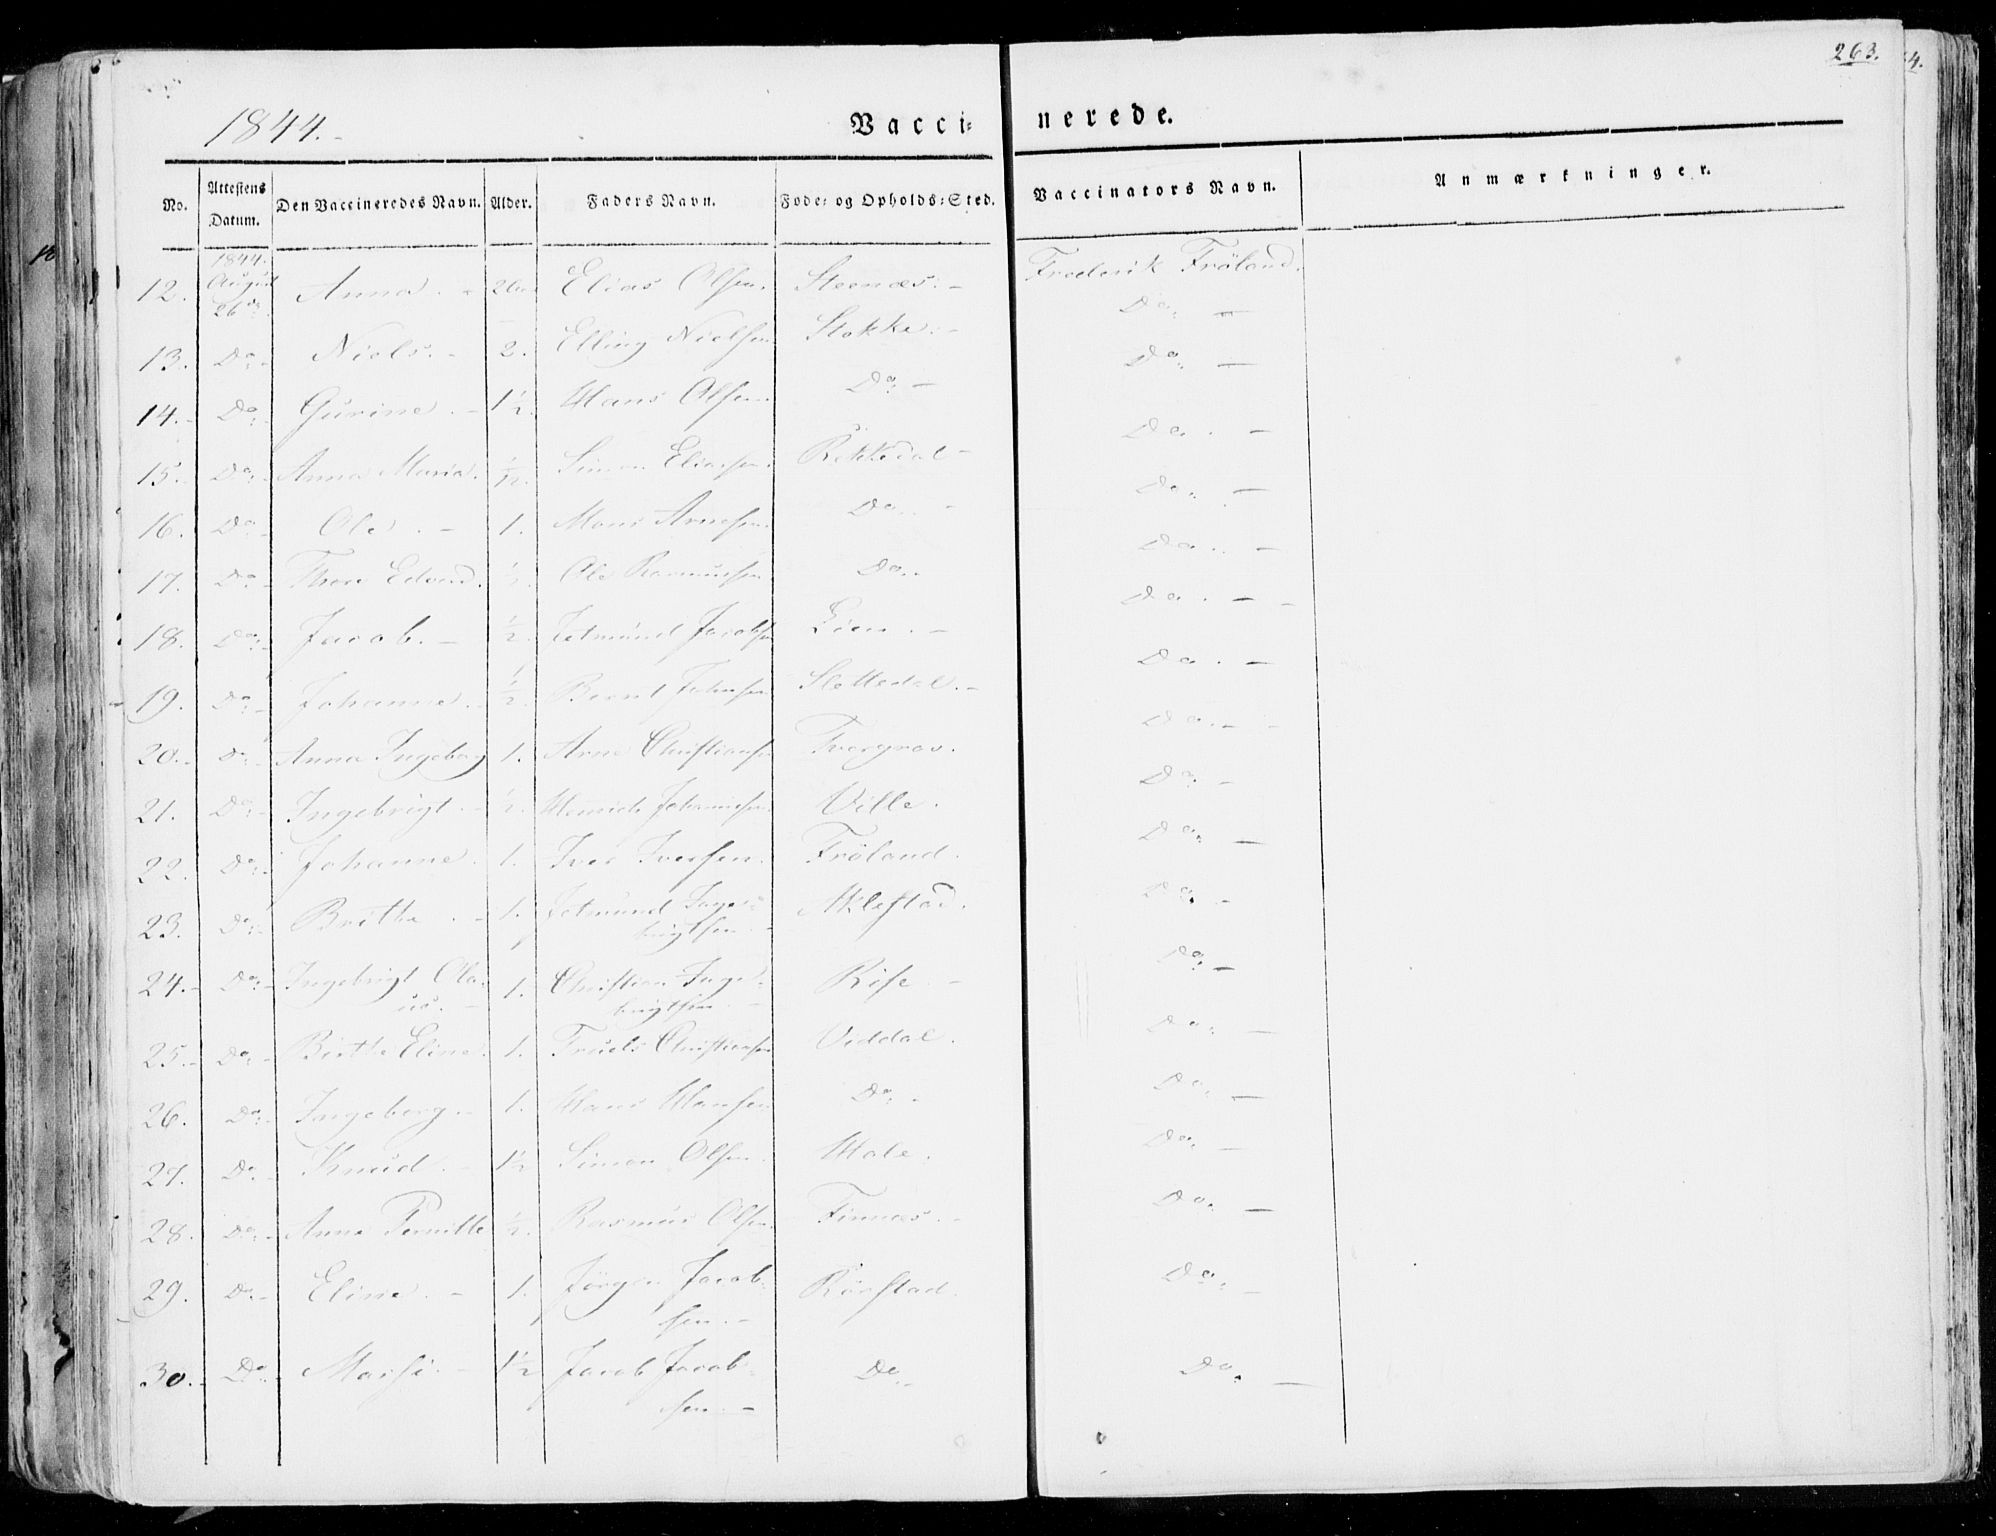 263.
4.
1844.
Vaccinerede.
No. Attestens Datum. Den Vaccineredes Navn. Alder. Faders Navn. Føde- og Opholds-Sted. Vaccinators Navn. Anmærkninger.
12. 1844. August 26de Anna. Elias Olsen. Steenæs. Frederik Fröland.
13. Do. Niels. 2. Elling Nielsen Stokke. Do.
14. Do. Gurine. 1½. Hans Olsen. Do. Do.
15. Do. Anna Maria. ½. Simon Eliassen. Rekkedal Do.
16. Do. Ole. 1. Mons Arnesen. Do. Do.
17. Do. Edvard. ½. Ole Rasmussen Do. Do.
18. Do. Jacob. ½. Jetmund Jacobsen Lien. Do.
19. Do. Johanne. ½. Bernt Johnsen Slettedal. Do.
20. Do. Anna Ingeborg 1. Arne Christiansen Tvergrov. Do.
21. Do. Ingebrigt. ½. Henrich Johannesen Ville. Do.
22. Do. Johanne. 1. Iver Iversen. Fröland. Do.
23. Do. Brithe. 1. Jetmund Inge-
brigtsen. Aklestad. Do.
24. Do. Ingebrigt Ola-
us. 1. Christian Inge-
brigtsen. Rise. Do.
25. Do. Birthe Eline. 1. Truels Christiansen Viddal. Do.
26. Do. Ingeborg. 1. Hans Hansen Do. Do.
27. Do. Knud. 1½ Simon Olsen. Hole. Do.
28. Do. Anne Pernille ½. Rasmus Olsen. Finnæs. Do.
29. Do. Eline. 1. Jörgen Jacob-
sen. Rörstad. Do.
30. Do. 1½ Jacob Jacob-
sen. Do. Do.